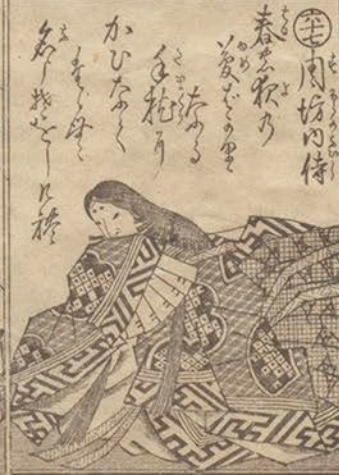 六七 周坊内侍
春の夜の
夢ばかり
なる
手枕に
かひなく
たゝむ
名こそをしけれ